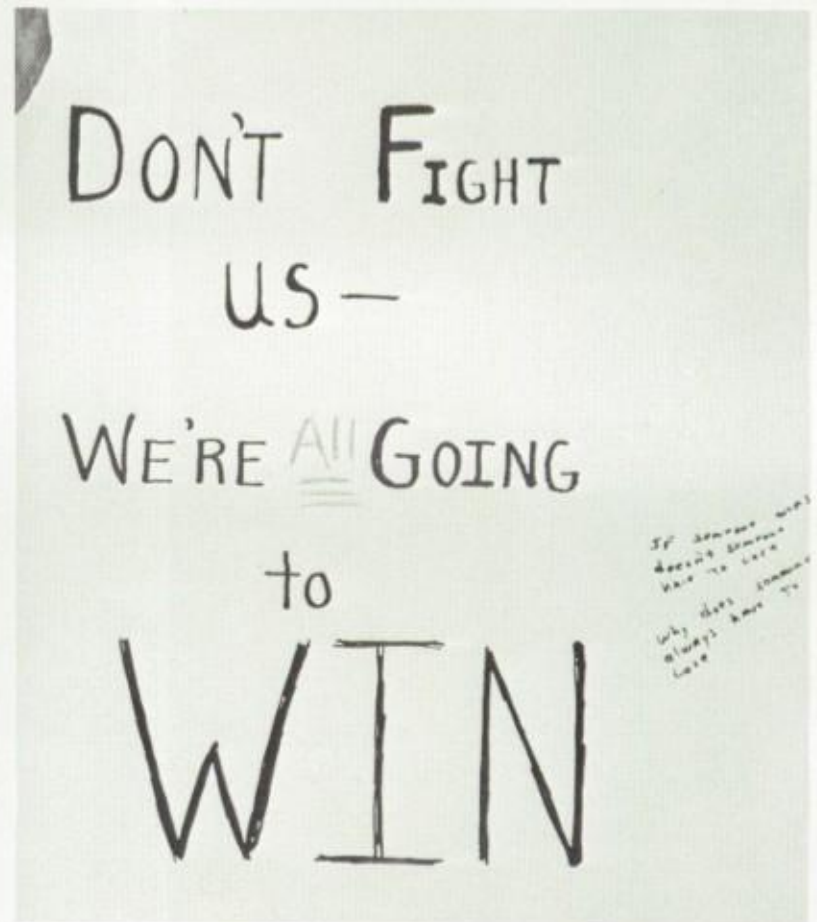 DON'T FIGHT
US—
WE'RE All GOING
to
WIN
If someone wins
doesn't someone
have to lose
why does someone
always have to
lose